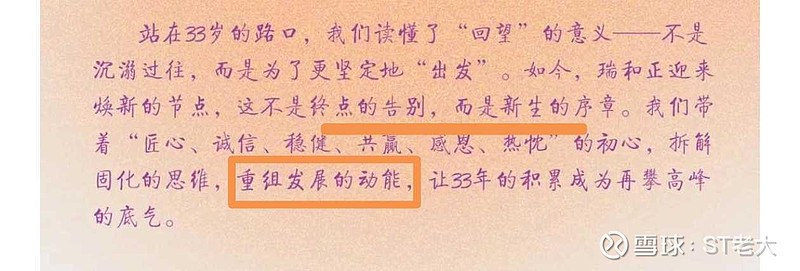 站在33岁的路口，我们读懂了“回望”的意义——不是
沉溺过往，而是为了更坚定地“出发”。如今，瑞和正迎来
焕新的节点，这不是终点的告别，而是新生的序章。我们带
着“匠心、诚信、稳健、共赢、感恩、热忱”的初心，拆解
固化的思维，重组发展的动能，让33年的积累成为再攀高峰
的底气。
雪球：ST老大